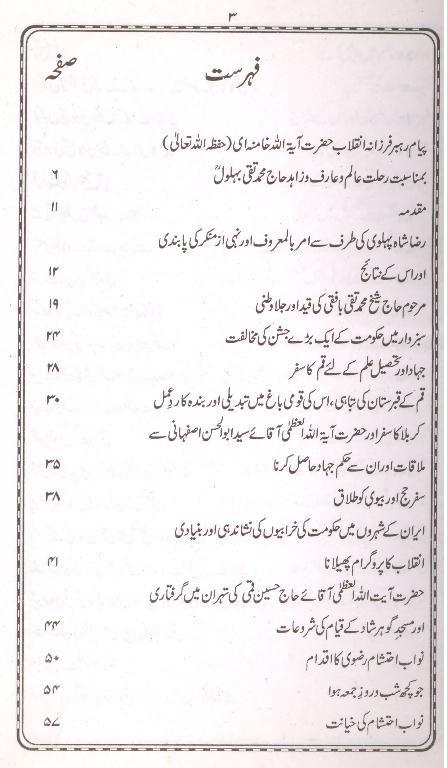 ۳
فہرست صفحہ
پیام رہبر فرزانہ انقلاب حضرت آیۃ اللہ خامنہ ای (حفظہ اللہ تعالیٰ)
بمناسبت رحلت عالم و عارف و زاہد حاج محمد تقی بہلولؒ ۶
مقدمہ ۱۱
رضا شاہ پہلوی کی طرف سے امر بالمعروف اور نہی از منکر کی پابندی
اور اس کے نتائج ۱۲
مرحوم حاج شیخ محمد تقی بافقی کی قید اور جلا وطنی ۱۹
سبزوار میں حکومت کے ایک بڑے جشن کی مخالفت ۲۴
جہاد اور تحصیل علم کے لئے قم کا سفر ۲۸
قم کے قبرستان کی تباہی، اس کی قومی باغ میں تبدیلی اور بندہ کا ردِ عمل ۳۰
کربلا کا سفر اور حضرت آیۃ اللہ العظمٰی آقائے سید ابوالحسن اصفہانی سے
ملاقات اور ان سے حکم جہاد حاصل کرنا ۳۵
سفر حج اور بیوی کو طلاق ۳۸
ایران کے شہروں میں حکومت کی خرابیوں کی نشاندہی اور بنیادی
انقلاب کا پروگرام پھیلانا ۴۱
حضرت آیت اللہ العظمٰی آقائے حاج حسین قمی کی تہران میں گرفتاری
اور مسجدِ گوہر شاد کے قیام کی شروعات ۴۴
نواب احتشام رضوی کا اقدام ۵۰
جو کچھ شب و روزِ جمعہ ہوا ۵۴
نواب احتشام کی خیانت ۵۷